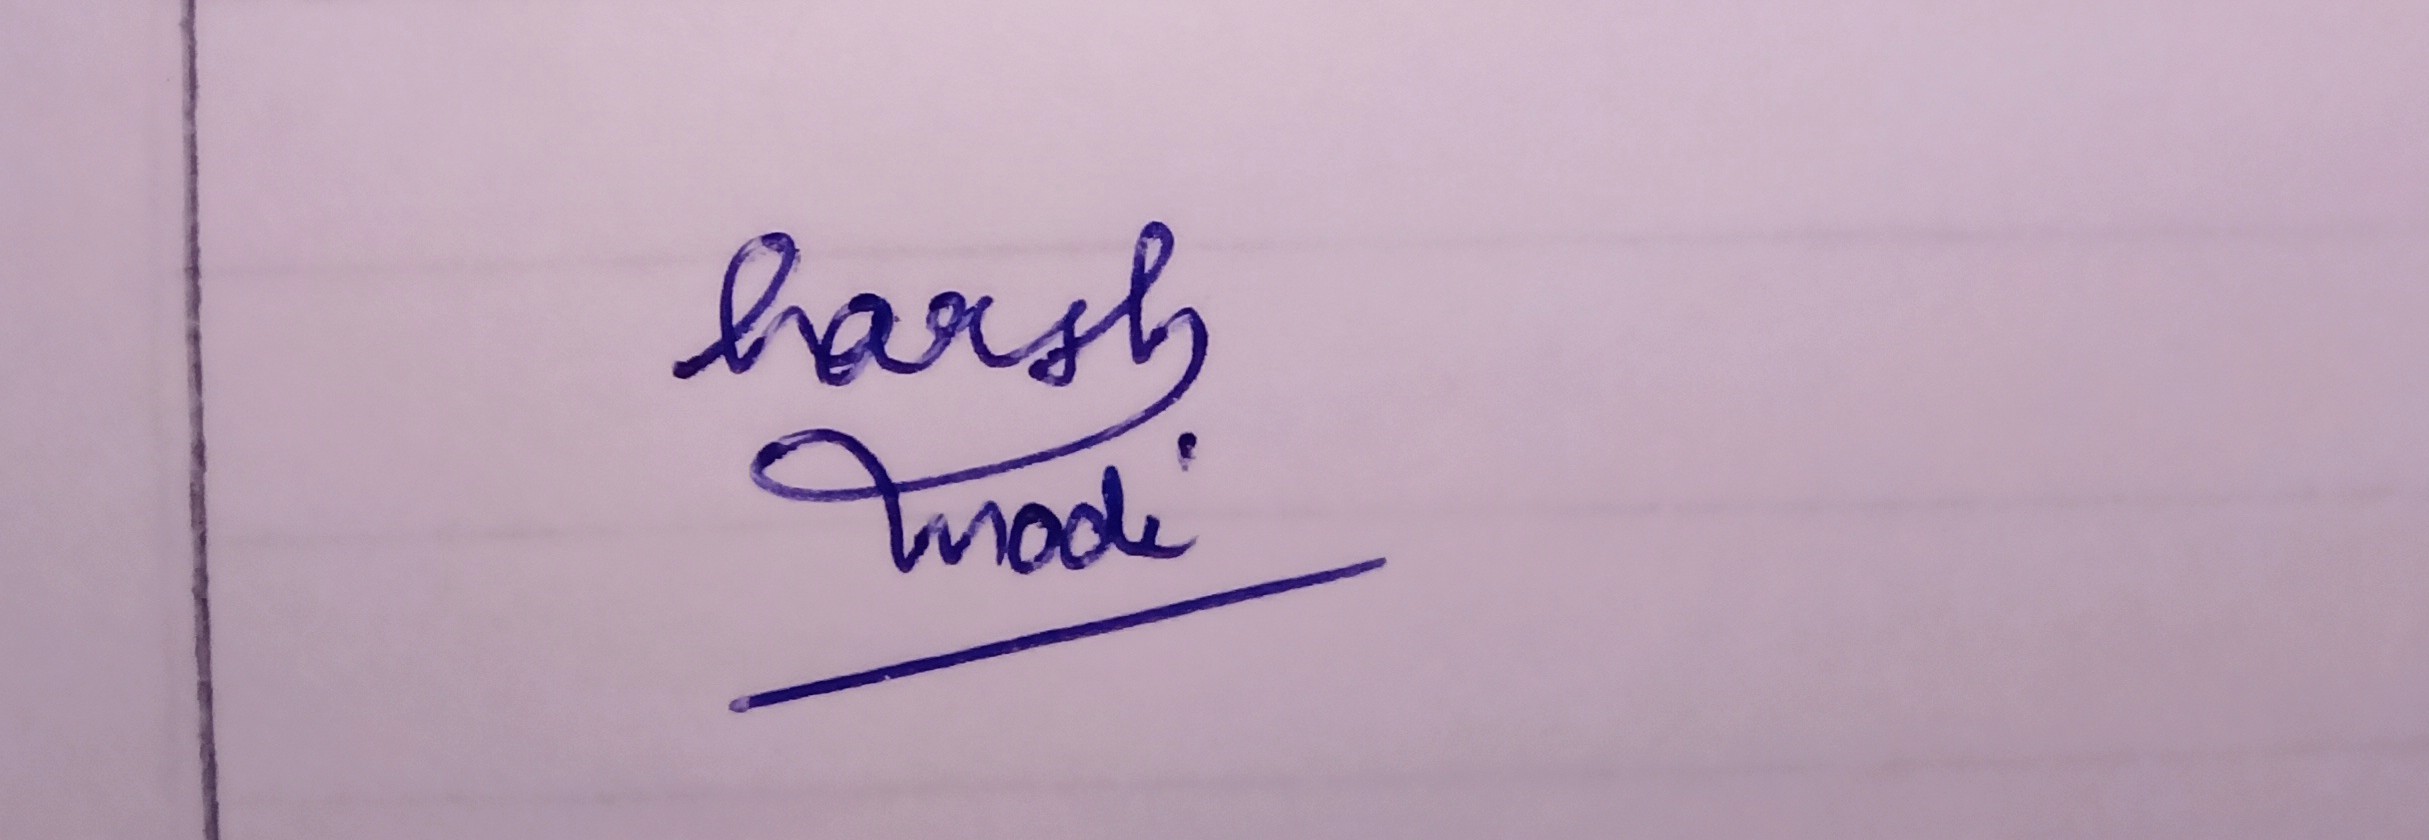 harsh
modi